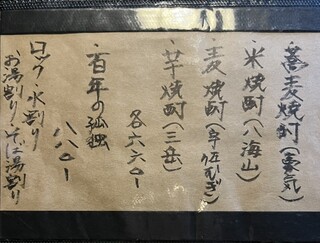 ・蕎麦焼酎(雲気)
・米焼酎(八海山)
・麦焼酎(辛伍むぎ)
・芋焼酎(三岳)
各六六〇ー
・百年の孤独
八八〇ー
ロック・水割り
お湯割り・そば湯割り